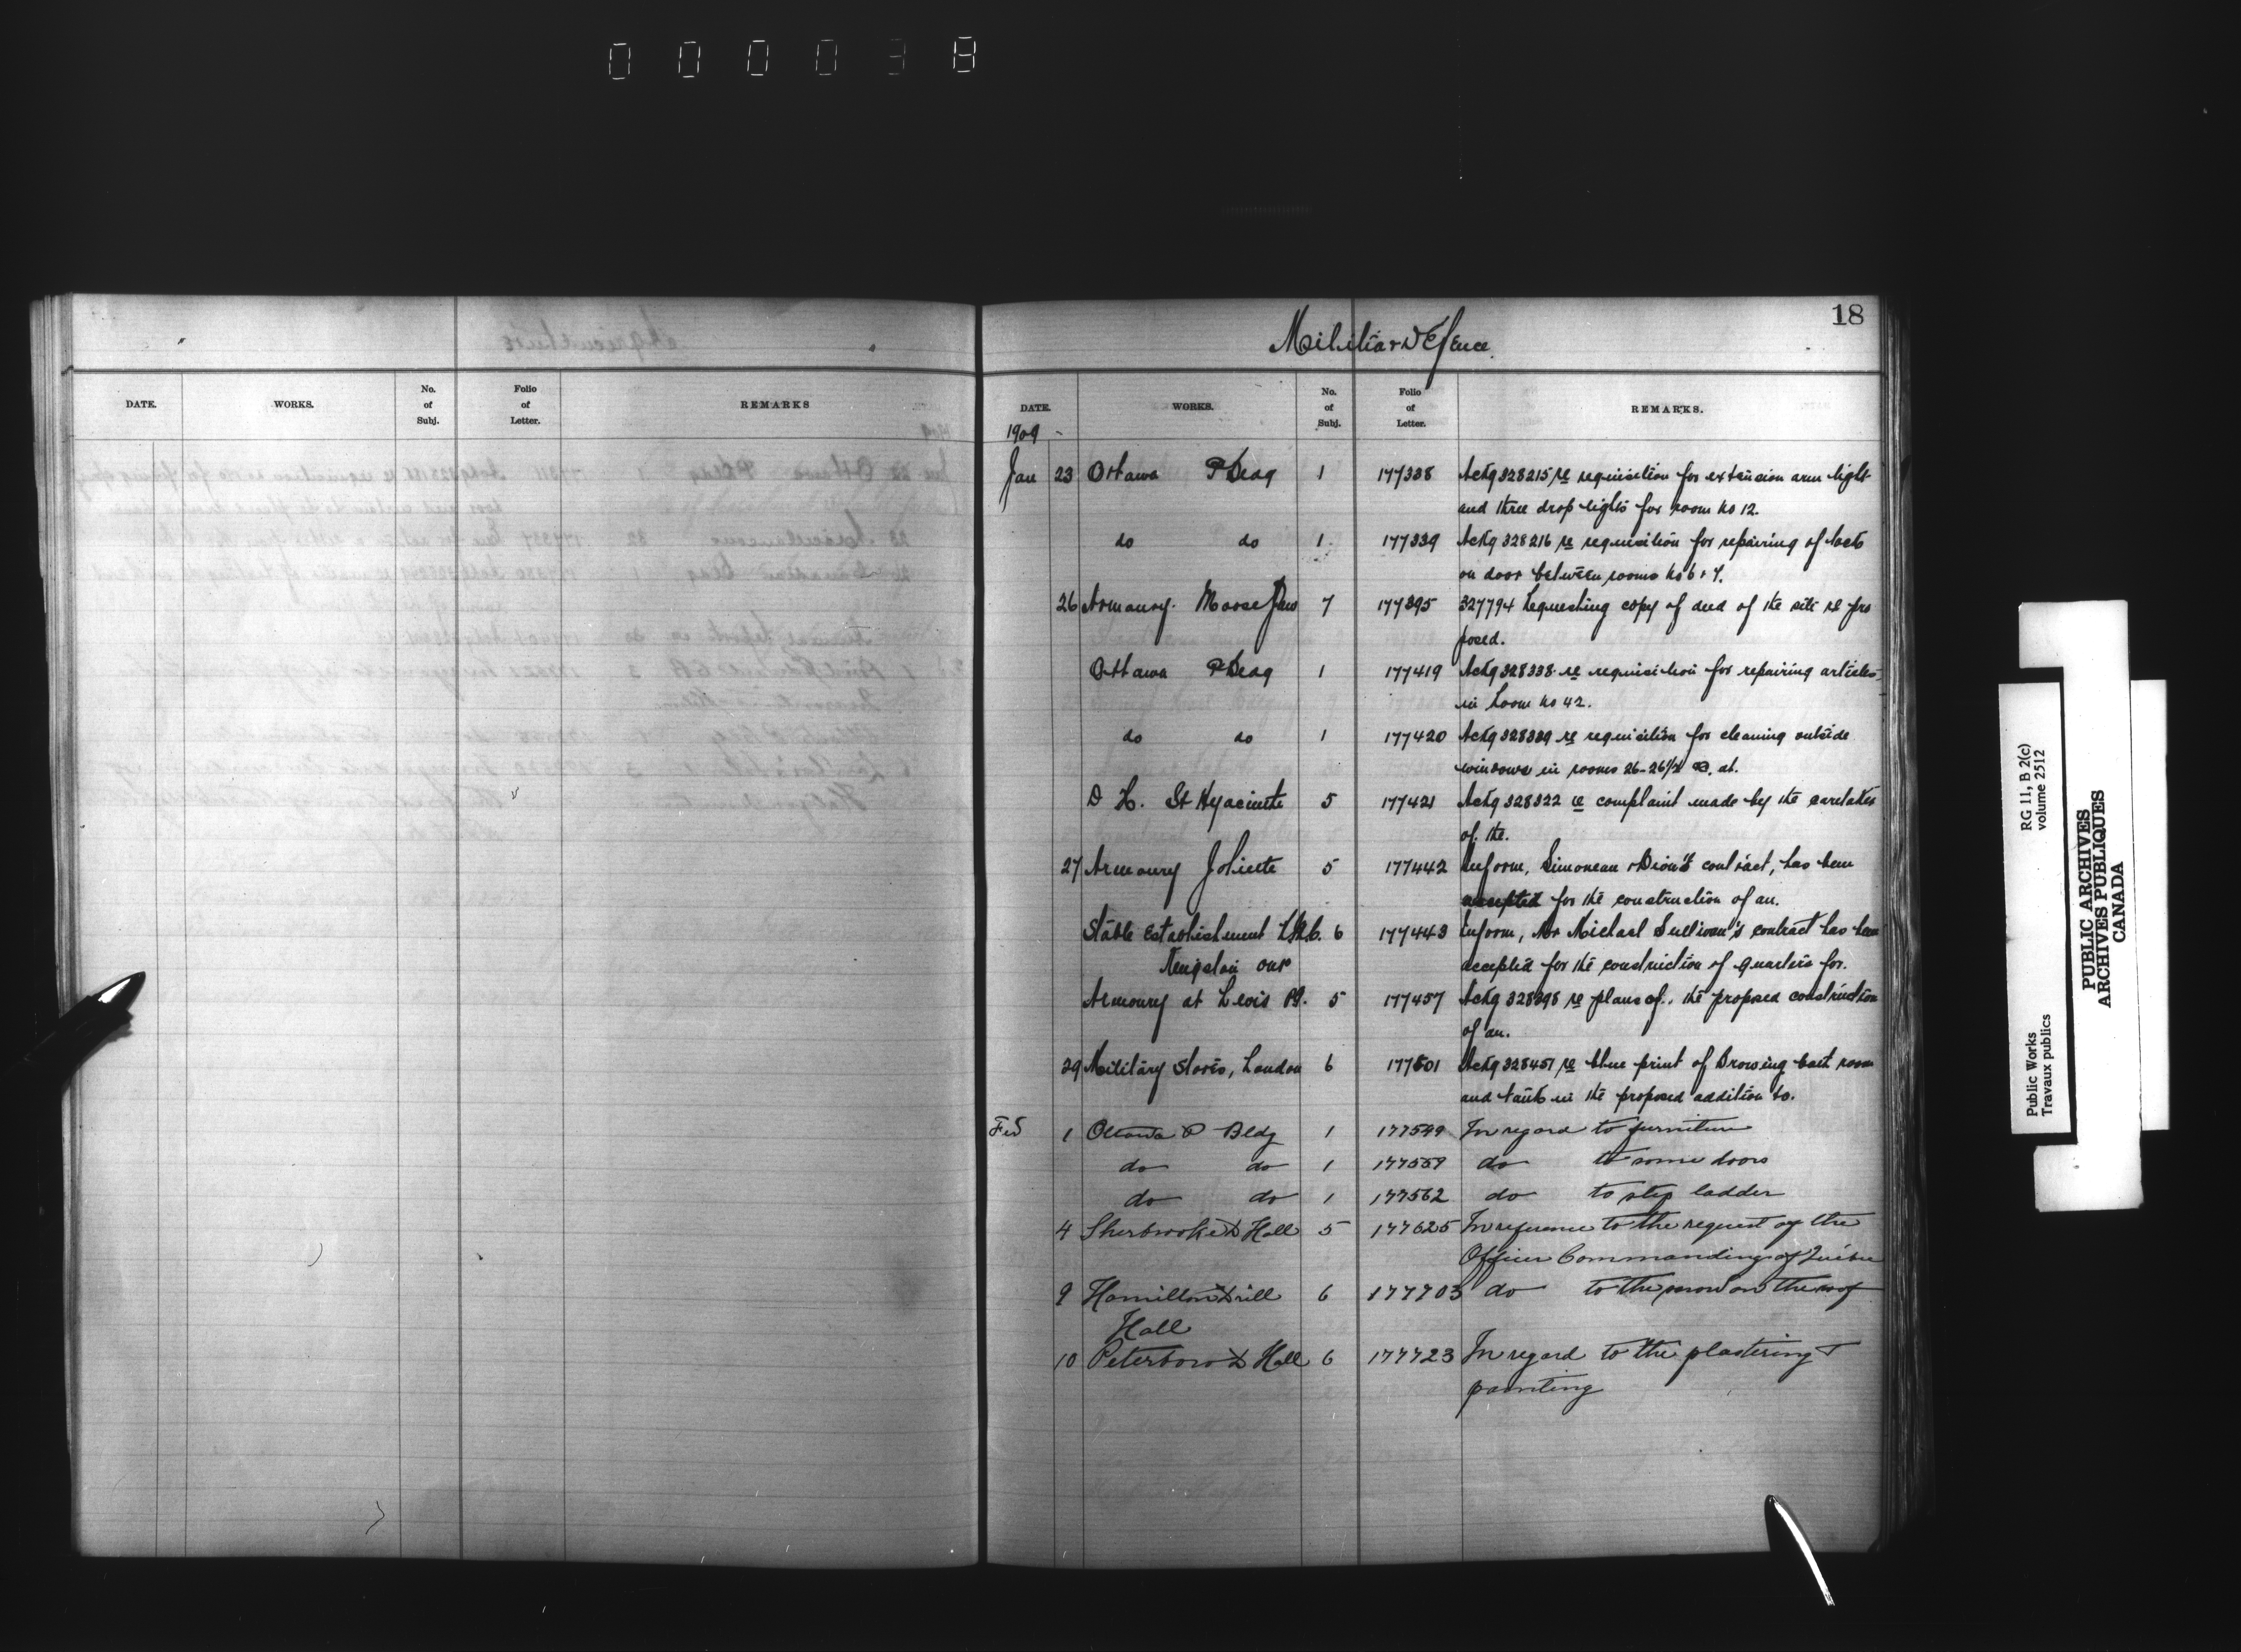 000038
18
Militia & Defence
DATE. WORKS. No. of Subj. Folio of Letter. REMARKS
DATE. WORKS. No. of Subj. Folio of Letter. REMARKS.
1909
Jan 23 Ottawa P Bldg 1 177338 Ackg 328215 re requisition for extension arm light
and three drop lights for room No 12.
do do 1 177339 Ackg 328216 re requisition for repairing of locks
on door between rooms No 6 & 7.
26 Armoury. Moose Jaw 7 177395 327794 Requesting copy of deed of the site re pro
posed.
Ottawa P Bldg 1 177419 Ackg 328338 re requisition for repairing articles
in Room No 42.
do do 1 177420 Ackg 328339 re requisition for cleaning outside
windows in rooms 26-26½ at.
D H. St Hyacinthe 5 177421 Ackg 328322 re complaint made by the caretaker
of the.
27 Armoury Joliette 5 177442 Inform, Simoneau & Dion's contract, has been
accepted for the construction of an.
Stable Establishment 6 177443 Inform, Mr Michael Sullivan's contract has been
Kingston Ont accepted for the construction of quarters for.
Armoury at Levis PQ. 5 177457 Ackg 328398 re plans of.. the proposed construction
of an.
29 Military Stores, London 6 177501 Ackg 328451 re blue print of Browsing bath room
and tank in the proposed addition to.
Feb 1 Ottawa P Bldg 1 177549 In regard to furniture
do do 1 177559 do to some doors
do do 1 177562 do to step ladder
4 Sherbrooke D Hall 5 177625 In reference to the request of the
Officer Commanding of Quebec
9 Hamilton Drill 6 177703 do to the snow on the roof
Hall
10 Peterboro D Hall 6 177723 In regard to the plastering &
painting
Public Works
Travaux publics
RG 11, B 2(c)
volume 2512
PUBLIC ARCHIVES
ARCHIVES PUBLIQUES
CANADA